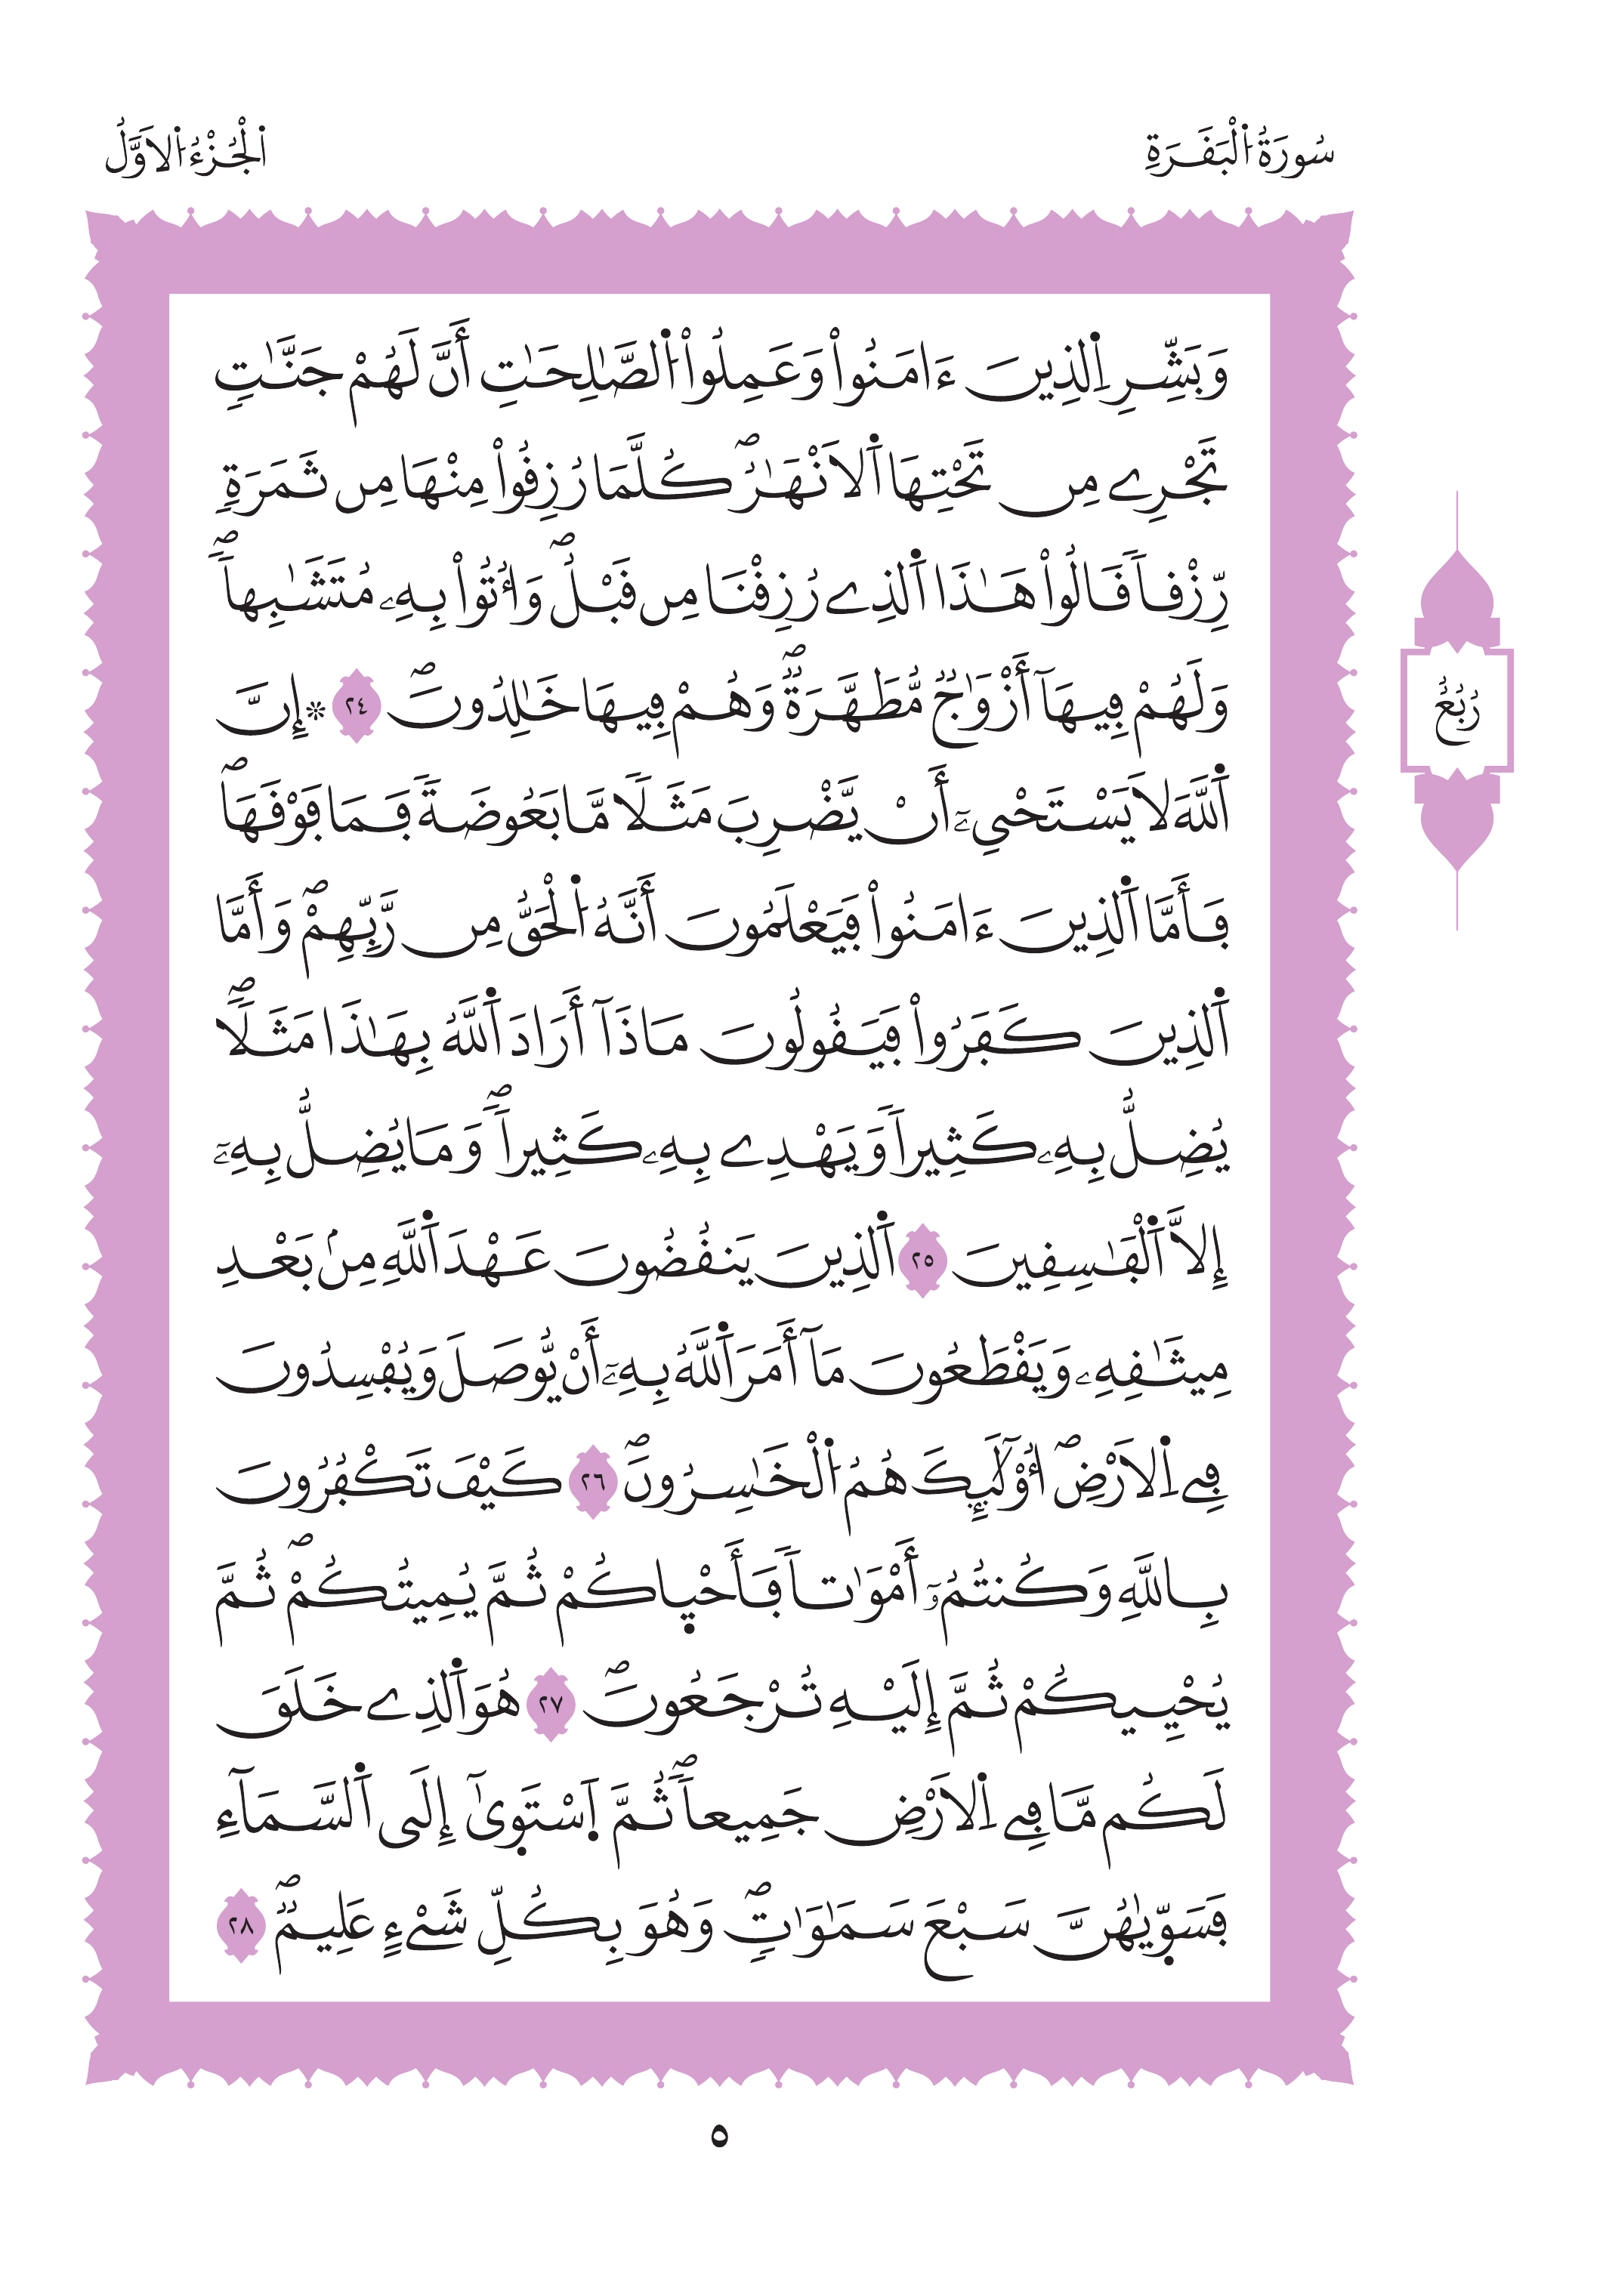 سُورَةُ اُ۬لْبَقَرَةِ
اُ۬لْجُزْءُ اُ۬لَاوَّلُ
وَبَشِّرِ اِ۬لذِينَ ءَامَنُواْ وَعَمِلُواْ اُ۬لصَّٰلِحَٰتِ أَنَّ لَهُمْ جَنَّٰتٖ
تَجْرِے مِن تَحْتِهَا اَ۬لَانْهَٰرُۖ كُلَّمَا رُزِقُواْ مِنْهَا مِن ثَمَرَةٖ
رِّزْقاٗ قَالُواْ هَٰذَا اَ۬لذِے رُزِقْنَا مِن قَبْلُۖ وَأُتُواْ بِهِۦ مُتَشَٰبِهاٗۖ
وَلَهُمْ فِيهَآ أَزْوَٰجٞ مُّطَهَّرَةٞۖ وَهُمْ فِيهَا خَٰلِدُونَۖ ٢٤ ۞ إِنَّ
رُبُعُ
اَ۬للَّهَ لَا يَسْتَحْيِۦٓ أَنْ يَّضْرِبَ مَثَلاٗ مَّا بَعُوضَةٗ فَمَا فَوْقَهَاۖ
فَأَمَّا اَ۬لذِينَ ءَامَنُواْ فَيَعْلَمُونَ أَنَّهُ اُ۬لْحَقُّ مِن رَّبِّهِمْۖ وَأَمَّا
اَ۬لذِينَ كَفَرُواْ فَيَقُولُونَ مَاذَآ أَرَادَ اَ۬للَّهُ بِهَٰذَا مَثَلاٗۖ
يُضِلُّ بِهِۦ كَثِيراٗ وَيَهْدِے بِهِۦ كَثِيراٗۖ وَمَا يُضِلُّ بِهِۦٓ
إِلَّا اَ۬لْفَٰسِقِينَ ٢٥ اَ۬لذِينَ يَنقُضُونَ عَهْدَ اَ۬للَّهِ مِنۢ بَعْدِ
مِيثَٰقِهِۦ وَيَقْطَعُونَ مَآ أَمَرَ اَ۬للَّهُ بِهِۦٓ أَنْ يُّوصَلَ وَيُفْسِدُونَ
فِے اِ۬لَارْضِۖ أُوْلَٰٓئِكَ هُمُ اُ۬لْخَٰسِرُونَۖ ٢٦ كَيْفَ تَكْفُرُونَ
بِاللَّهِ وَكُنتُمُۥٓ أَمْوَٰتاٗ فَأَحْيٜاكُمْ ثُمَّ يُمِيتُكُمْۖ ثُمَّ
يُحْيِيكُمْ ثُمَّ إِلَيْهِ تُرْجَعُونَۖ ٢٧ هُوَ اَ۬لذِے خَلَقَ
لَكُم مَّا فِے اِ۬لَارْضِ جَمِيعاٗۖ ثُمَّ اَ۪سْتَوٜىٰٓ إِلَى اَ۬لسَّمَآءِ
فَسَوّٜيٰهُنَّ سَبْعَ سَمَٰوَٰتٖۖ وَهُوَ بِكُلِّ شَےْءٍ عَلِيمٞۖ ٢٨
٥